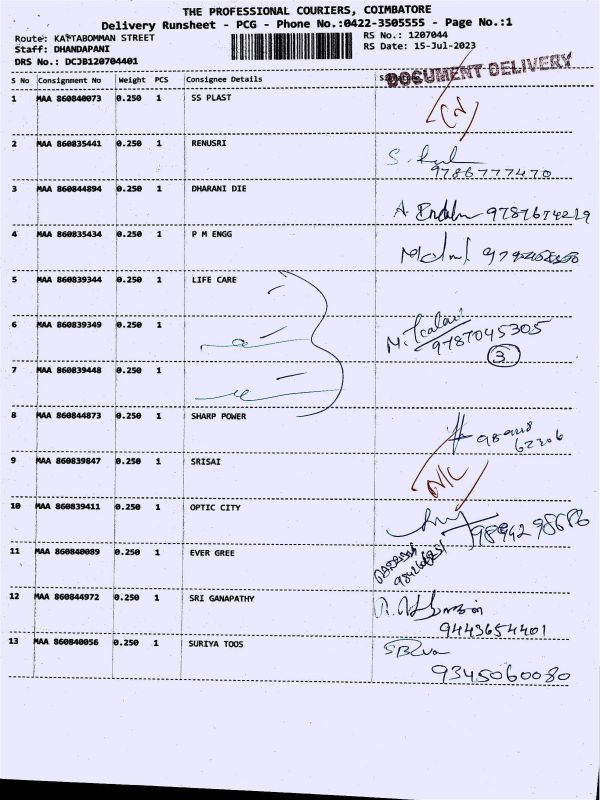 THE PROFESSIONAL COURIERS, COIMBATORE
Delivery Runsheet - PCG - Phone No.:0422-3505555 - Page No.:1
Route: KATTABOMMAN STREET RS No.: 1207044
Staff: DHANDAPANI RS Date: 15-Jul-2023
DRS No.: DCJB120704401
DOCUMENT DELIVERY
S No Consignment No Weight PCS Consignee Details
1 MAA 860840073 0.250 1 SS PLAST
2 MAA 860835441 0.250 1 RENUSRI
9786777470
3 MAA 860844894 0.250 1 DHARANI DIE
A 9787674229
4 MAA 860835434 0.250 1 P M ENGG
5 MAA 860839344 0.250 1 LIFE CARE
6 MAA 860839349 0.250 1
M. 9787045305
3
7 MAA 860839448 0.250 1
8 MAA 860844873 0.250 1 SHARP POWER
9 MAA 860839847 0.250 1 SRISAI
N/C
10 MAA 860839411 0.250 1 OPTIC CITY
11 MAA 860840089 0.250 1 EVER GREE
12 MAA 860844972 0.250 1 SRI GANAPATHY
9443654401
13 MAA 860840056 0.250 1 SURIYA TOOS
9345060080